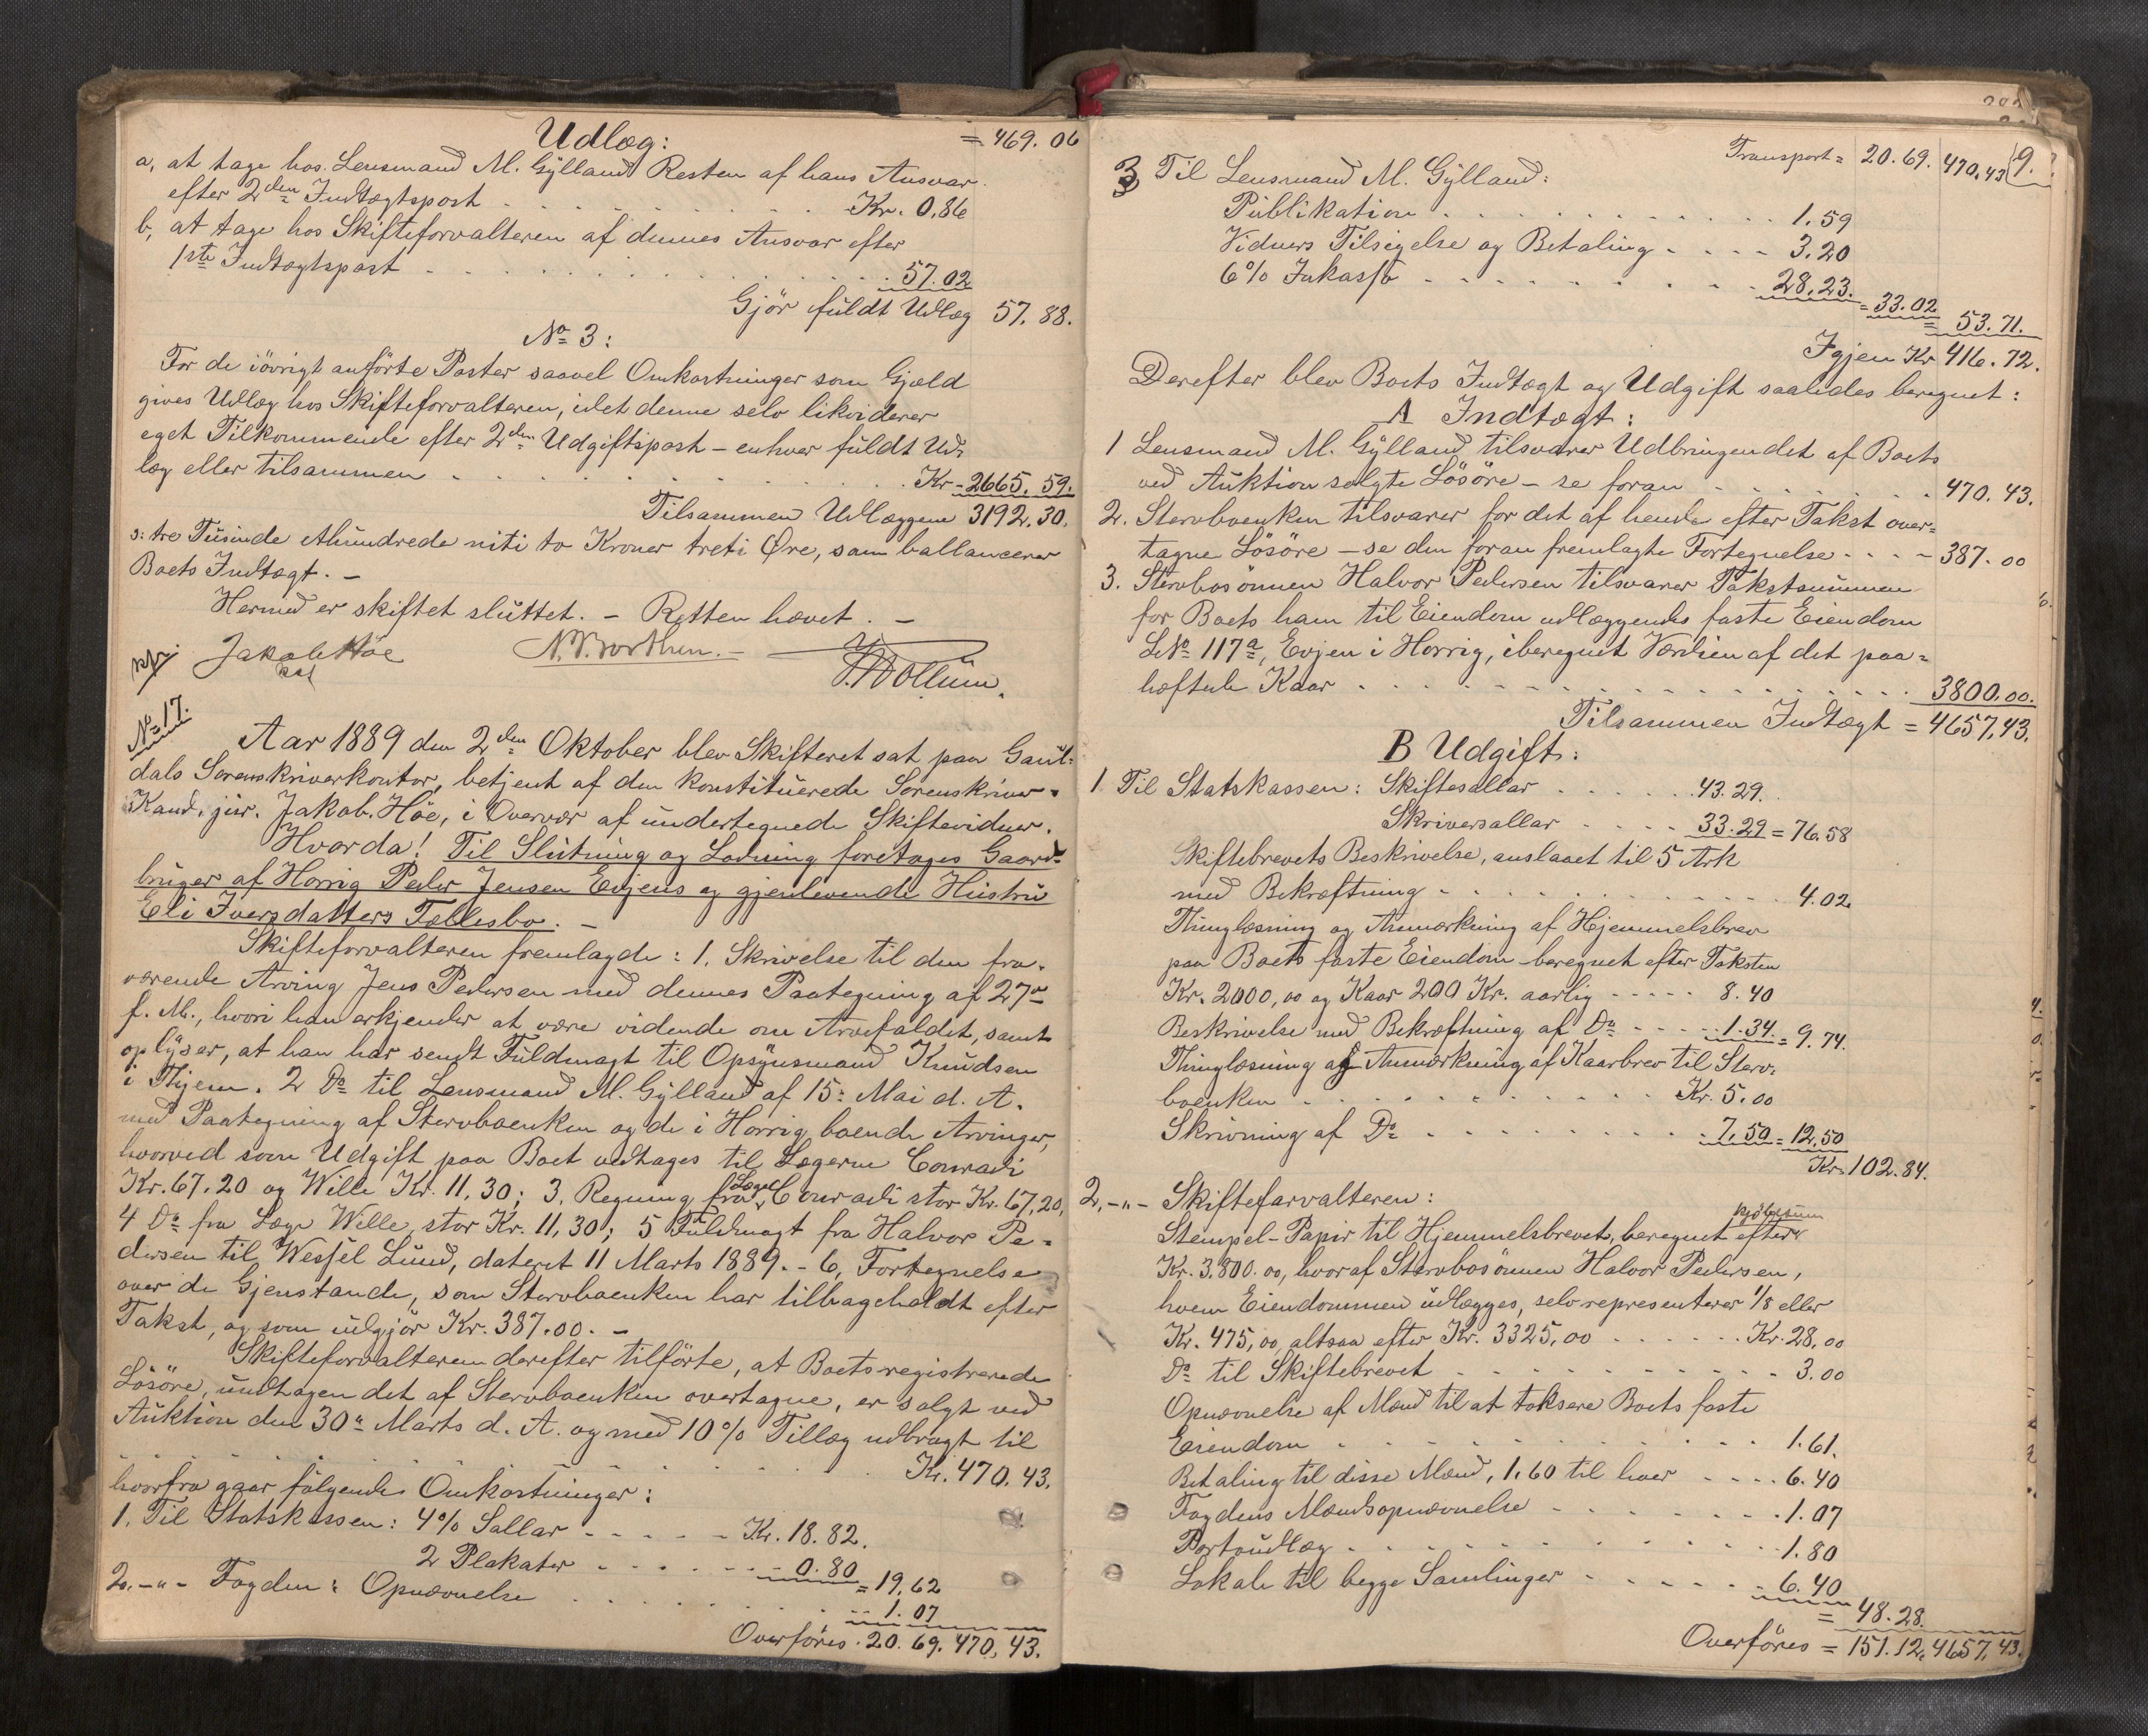 Udlæg:
= 469. 06
a, at tage hos Lensmand M. Gylland Resten af hans Ansvar
efter 2den Indtægtspost . . . . . . . . Kr. 0.86
b, at tage hos Skifteforvalteren af dennes Ansvar efter
1ste Indtægtspost . . . . . . . . . . . . . 57.02
Gjör fuldt Udlæg 57. 88.
No 3:
For de iövrigt anförte Poster saavel Omkostninger som Gjæld
gives Udlæg hos Skifteforvalteren, idet denne selv likviderer
eget Tilkommende efter 2den Udgiftspost – enhver fuldt Ud=
læg eller tilsammen . . . . . . . . . Kr. 2665. 59.
Tilsammen Udlæggene 3192. 30.
s: tre Tusinde ethundrede niti to Kroner treti Øre, som ballancerer
Boets Indtægt. –
Hermed er skiftet sluttet. – Retten hævet. –
Jakob Höe
kst
No 17.
Aar 1889 den 2den Oktober blev Skifteret sat paa Gaul=
dals Sorenskriverkontor, betjent af den konstituerede Sorenskriver =
Kand. jur. Jakob Höe, i Overvær af undertegnede Skiftevidner.
Hvorda! Til Slutning og Lodning foretages Gaard=
bruger af Horrig Peder Jensen Evjens og gjenlevende Hustru
Eli Iversdatters Fællesbo. –
Skifteforvalteren fremlagde: 1. Skrivelse til den fra=
værende Arving Jens Pedersen med dennes Paategning af 27de
f. M., hvori han erkjender at være vidende om Arvefaldet, samt
oplyser, at han har sendt Fuldmagt til Opsynsmand Knudsen
i Hjem. 2 Do til Lensmand M. Gylland af 15: Mai d. A.
med Paategning af Stervboenken og de i Horrig boende Arvinger,
hvorved som Udgift paa Boet vedtages til Lægerne Conradi
Kr. 67.20 og Wille Kr. 11,30; 3. Regning fra Læge Conradi stor Kr. 67,20,
4 Do fra Læge Wille, stor Kr. 11,30; 5 Fuldmagt fra Halvor Pe=
dersen til Wessel Lund, dateret 11 Marts 1889. – 6, Fortegnelse
over de Gjenstande, som Stervboenken har tilbageholdt efter
Takst, og som udgjör Kr. 387.00. –
Skifteforvalteren derefter tilförte, at Boets registrerede
Lösöre, undtagen det af Stervboenken overtagne, er solgt ved
Auktion den 30te Marts d. A. og med 10% Tillæg udbragt til
. . . . . . . . . . . . . . Kr. 470. 43.
hvorfra gaar fölgende Omkostninger:
1. Til Statskassen: 4% Sallær . . . . . Kr. 18. 82.
2 Plakater . . . . . . 0. 80 = 19,62
2. –"– Fogden: Opnævnelse . . . . . . . . 1. 07
Overföres. 20. 69. 470, 43.
9.
Transport = 20. 69. 470, 43
3 Til Lensmand M. Gylland:
Publikation . . . . . . . . . . 1. 59
Vidners Tilsigelse og Betaling . . . . 3. 20
6% Inkasso . . . . . . . . . 28. 23. = 33. 02 = 53. 71.
Igjen Kr 416. 72.
Derefter blev Boets Indtægt og Udgift saaledes beregnet:
A Indtægt:
1 Lensmand M. Gylland tilsvarer Udbringendet af Boets
ved Auktion solgte Lösöre – se foran . . . . . . . 470. 43.
2. Stervboenken tilsvarer for det af hende efter Takst over=
tagne Lösöre – se den foran fremlagte Fortegnelse . . . . 387. 00
3. Stervbosönnen Halvor Pedersen tilsvarer Takstsummen
for Boets ham til Eiendom udlæggendes faste Eiendom
L.No 117a, Evjen i Horrig, iberegnet Værdien af det paa=
hæftede Kaar . . . . . . . . . . . . 3800. 00.
Tilsammen Indtægt = 4657, 43.
B Udgift:
1. Til Statskassen: Skiftesallær . . . . . . . 43. 29.
Skriversallær . . . . 33. 29 = 76. 58
Skiftebrevets Beskrivelse, anslaaet til 5 Ark
med Bekræftning . . . . . . . . . . . . 4. 02
Thinglæsning og Anmærkning af Hjemmelsbrev
paa Boets faste Eiendom – beregnet efter Taksten
Kr. 2000, 00 og Kaar 200 Kr. aarlig . . . . . 8. 40
Beskrivelse med Bekræftning af Do . . . . . 1. 34. = 9. 74.
Thinglæsning og Anmærkning af Kaarbrev til Sterv=
boenken . . . . . . . . . . . . Kr. 5. 00
Skrivning af Do . . . . . . . . . 7. 50 = 12. 50
Kr. 102. 84.
2, –"– Skifteforvalteren:
Stempel-Papir til Hjemmelsbrevet, beregnet efter kjöbesum
Kr. 3.800. 00, hvoraf Stervbosönnen Halvor Pedersen,
hvem Eiendommen udlægges, selv representerer 1/8 eller
Kr. 475, 00, altsaa efter Kr. 3325, 00 . . . . . . Kr. 28, 00
Do til Skiftebrevet . . . . . . . . . . 3. 00
Opnævnelse af Mænd til at taksere Boets faste
Eiendom . . . . . . . . . . . . . 1. 61.
Betaling til disse Mænd, 1. 60 til hver . . . . 6. 40
Fogdens Mændsopnævnelse . . . . . . . . 1. 07
Portoudlæg . . . . . . . . . . . . 1. 80
Lokale til begge Samlinger . . . . . . . 6. 40 = 48. 28.
Overföres = 151. 12. 4657, 43.